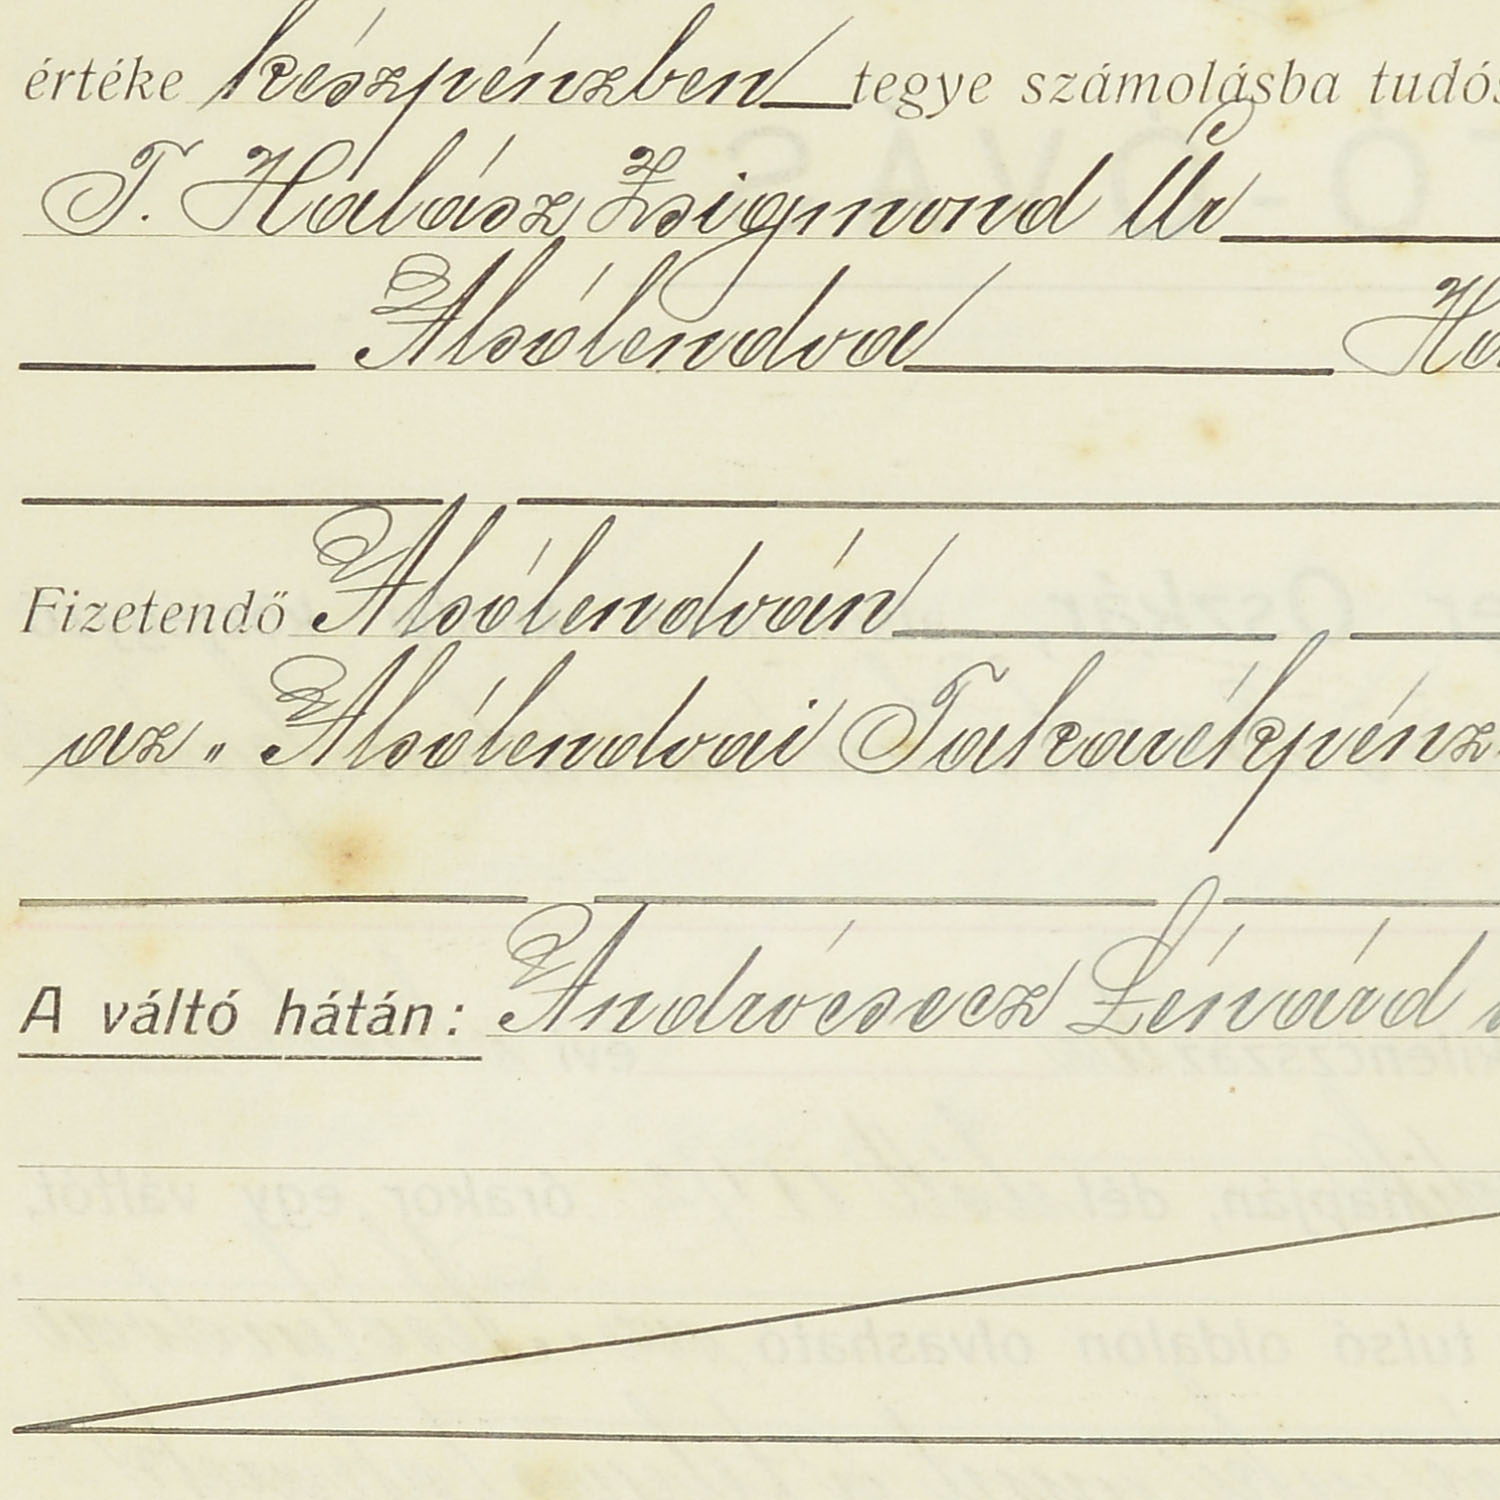 értéke készpénzben tegye számolásba tudós
T. Halász Zsigmond Úr
Alsólendva
Fizetendő Alsólendván
az „Alsólendvai Takarékpénz
A váltó hátán: Andrócsecz Lénárd